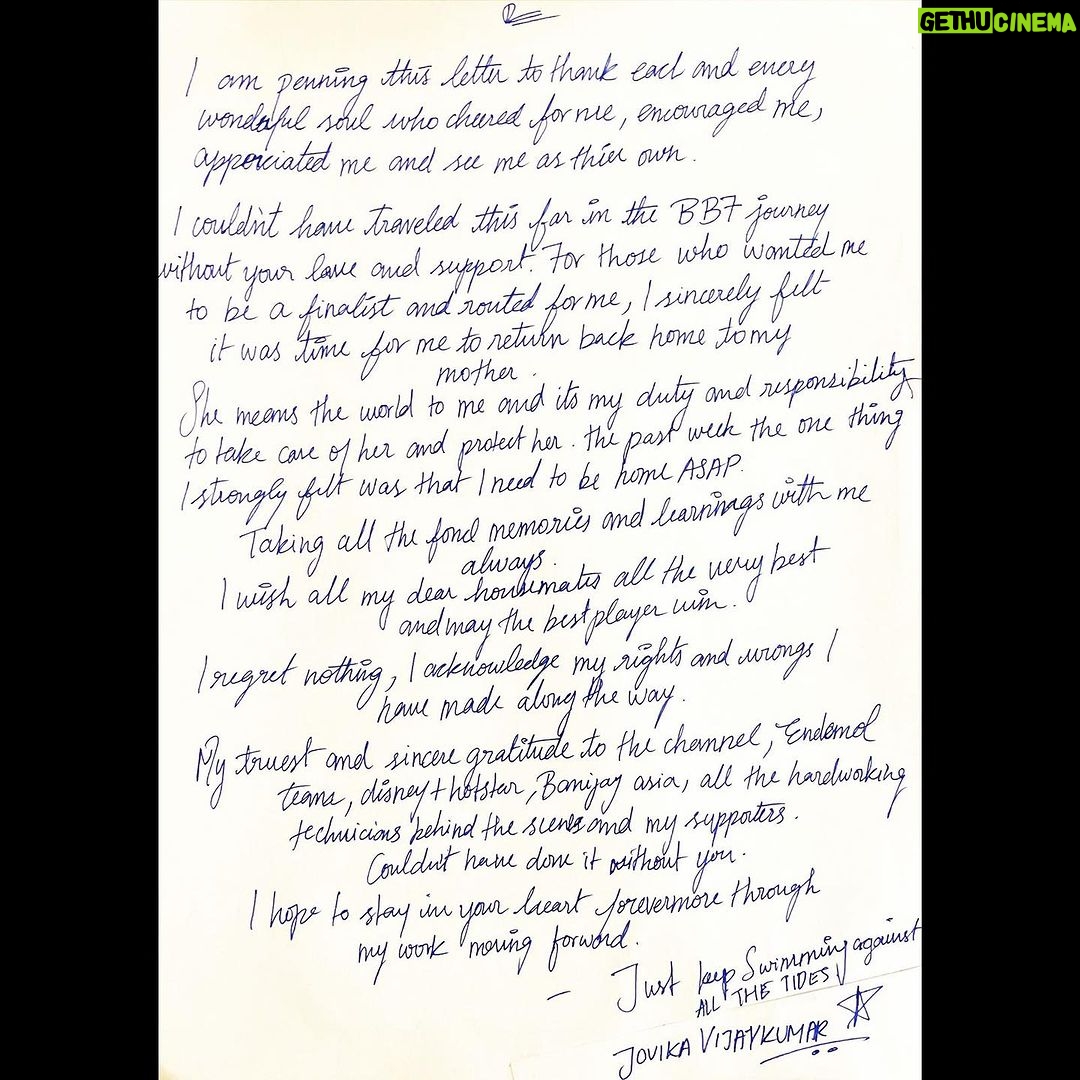 GETHU CINEMA
I am penning this letter to thank each and every
wonderful soul who cheered for me, encouraged me,
apporiciated me and see me as thier own.
I couldn't have traveled this far in the BB7 journey
without your love and support. For those who wanted me
to be a finalist and routed for me, I sincerely felt
it was time for me to return back home to my
mother.
She means the world to me and its my duty and responsibility
to take care of her and protect her. The past week the one thing
I strongly felt was that I need to be home ASAP.
Taking all the fond memories and learnings with me
always.
I wish all my dear housemates all the very best
and may the best player win.
I regret nothing, I acknowledge my rights and wrongs I
have made along the way.
My truest and sincere gratitude to the channel, Endemol
teams, disney+hotstar, Banijay asia, all the hardworking
technicians behind the scenes and my supporters.
Couldn't have done it without you.
I hope to stay in your heart forevermore through
my work moving forward.
– Just keep Swimming against
ALL THE TIDES
JOVIKA VIJAYKUMAR